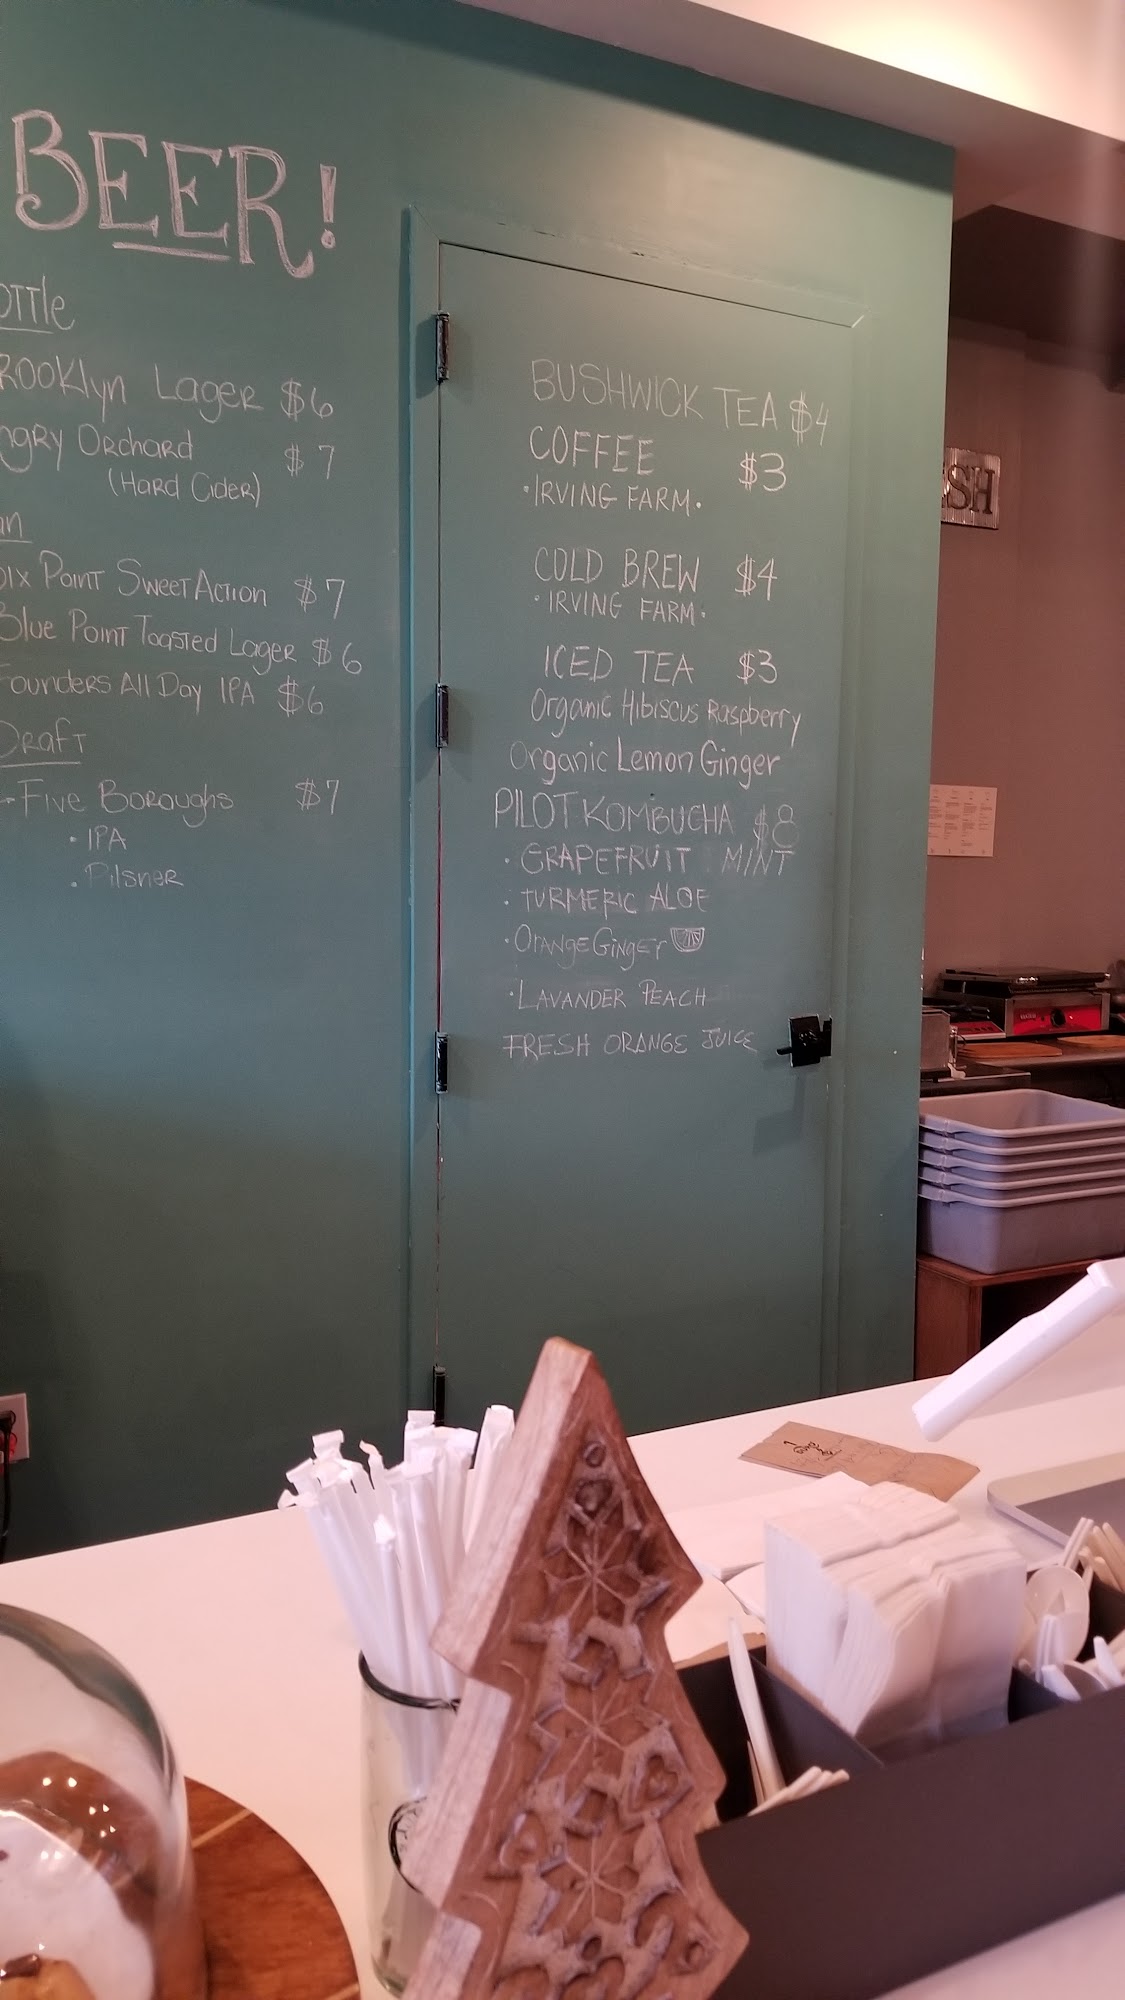 BEER!
ottle
rooklyn Lager $6
ngry Orchard $7
(Hard Cider)
an
Six Point Sweet Action $7
Blue Point Toasted Lager $6
Founders All Day IPA $6
Draft
Five Boroughs $7
· IPA
· Pilsner
BUSHWICK TEA $4
COFFEE $3
· IRVING FARM ·
COLD BREW $4
· IRVING FARM ·
ICED TEA $3
Organic Hibiscus Raspberry
Organic Lemon Ginger
PILOT KOMBUCHA $8
· GRAPEFRUIT MINT
· TURMERIC ALOE
· Orange Ginger
· LAVANDER PEACH
FRESH ORANGE JUICE
SH